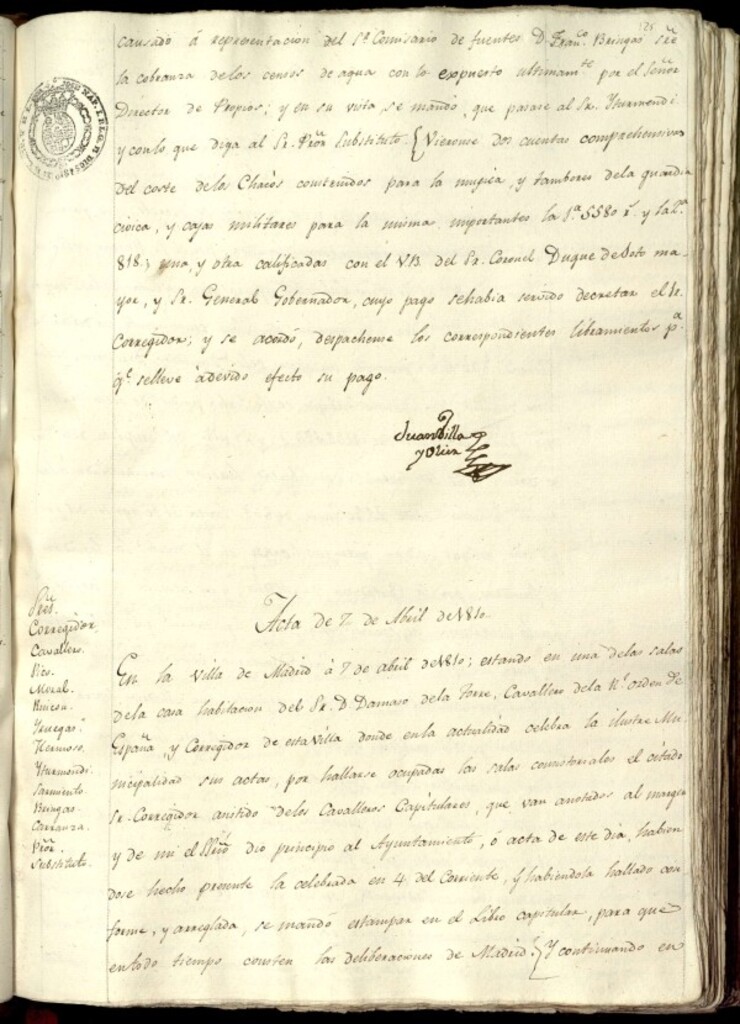 125
causado á representacion del Sr. Comisario de fuentes D. Franco. Bringas sre
la cobranza delos censos de agua con lo expuesto ultimamte. por el Señor
Director de Propios; y en su vista se mandó, que pasase al Sr. Yturmendi
y con lo que diga al Sr. Pror. Substituto. { Vieronse dos cuentas comprehensivas
del coste delos Chacós construidos para la musica, y tambores dela guardia
civica, y cajas militares para la misma importantes la 1a. 5580 rs. y la 2a.
818; una, y otra calificadas con el VB. del Sr. Coronel Duque de Soto ma-
yor, y Sr. General Gobernador, cuyo pago sehabia servido decretar el Sr.
Corregidor; y se acordó, despachense los correspondientes libramientos pa.
qe. selleve àdevido efecto su pago.
Juan Villa
y Olier
Acta de 7 de Abril de 1810.
Pres.
Corregidor.
Cavallero.
Rico.
Moral.
Rincon.
Yruegas.
Hermoso.
Yturmendi.
Sarmiento.
Bringas.
Carranza.
Pror.
Substituto.
En la Villa de Madrid à 7 de abril de 1810; estando en una delas salas
dela casa habitacion del Sr. D. Damaso dela Torre, Cavallero dela Rl. orden de
España, y Corregidor de esta Villa donde en la actualidad celebra la ilustre Mu-
nicipalidad sus actas, por hallarse ocupadas las salas consistoriales el citado
Sr. Corregidor asistido delos Cavalleros Capitulares, que van anotados al margen
y de mi el Ssrio. dio principio al Ayuntamiento, ó acta de este dia, habien
dose hecho presente la celebrada en 4 del Corriente, y habiendola hallado con
forme, y arreglada, se mandó estampar en el Libro capitular, para que
entodo tiempo consten las deliberaciones de Madrid. { Y continuando en